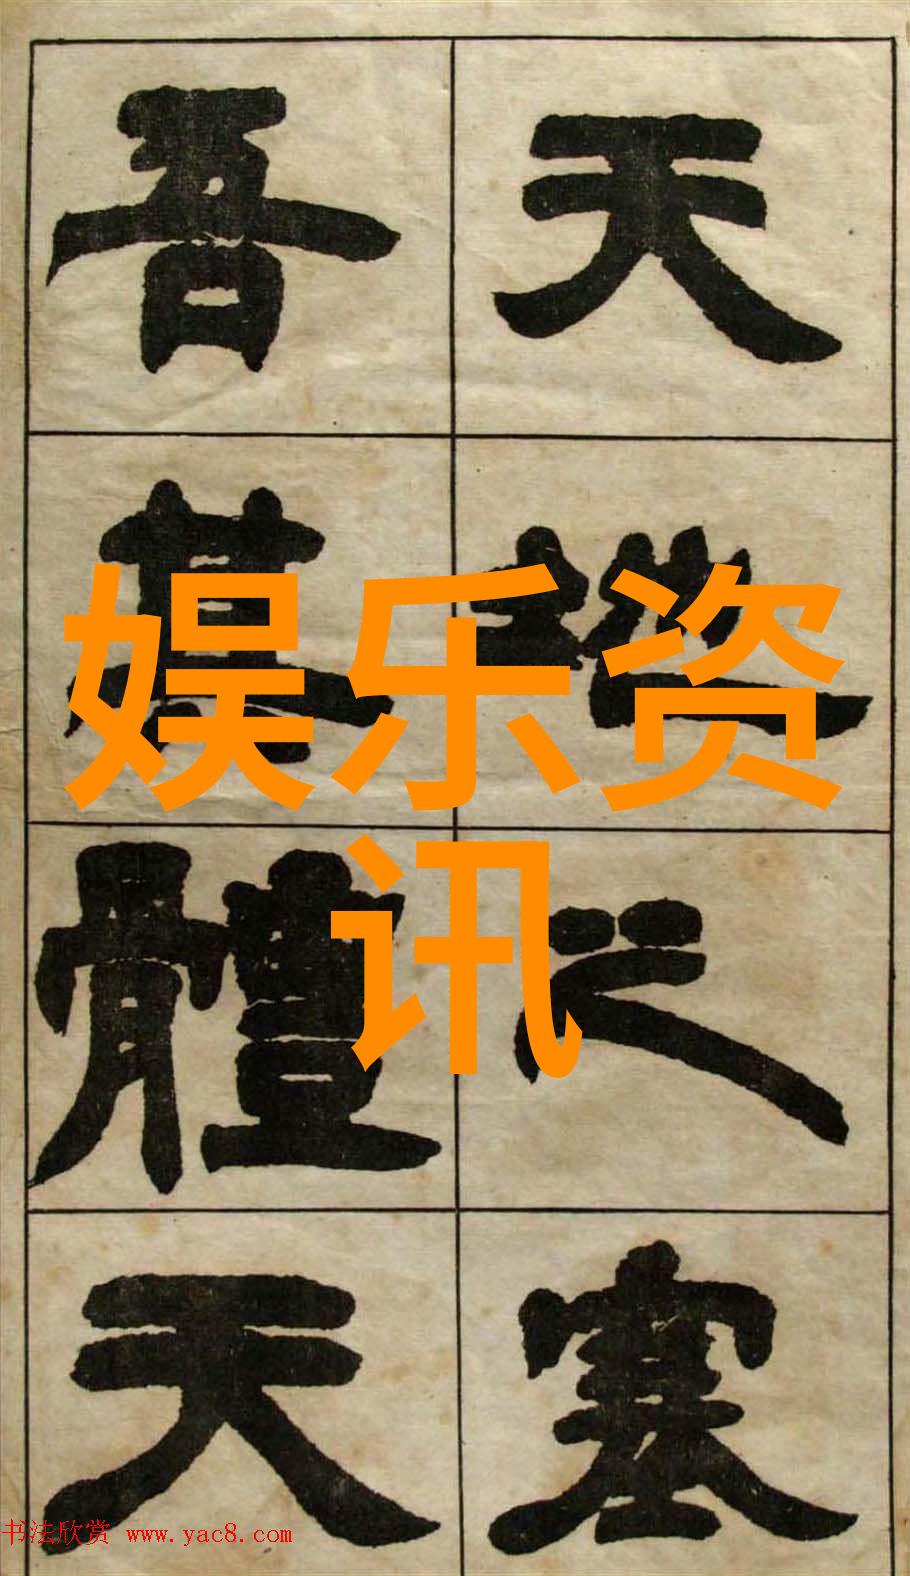 天地之塞
吾其體天
娱乐资
讯
书法欣赏 www.yac8.com